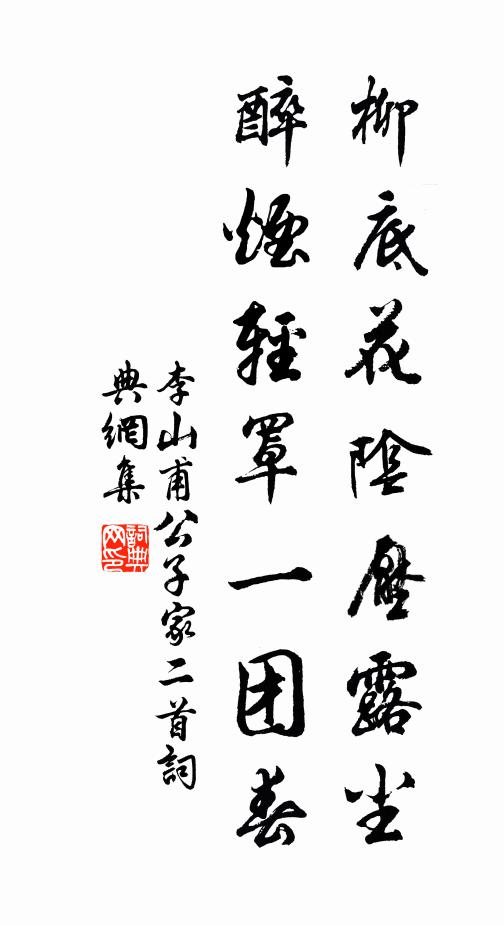 柳底花陰壓露塵
醉煙輕罩一团春
李山甫公子家二首詞
典網集
詞典网印